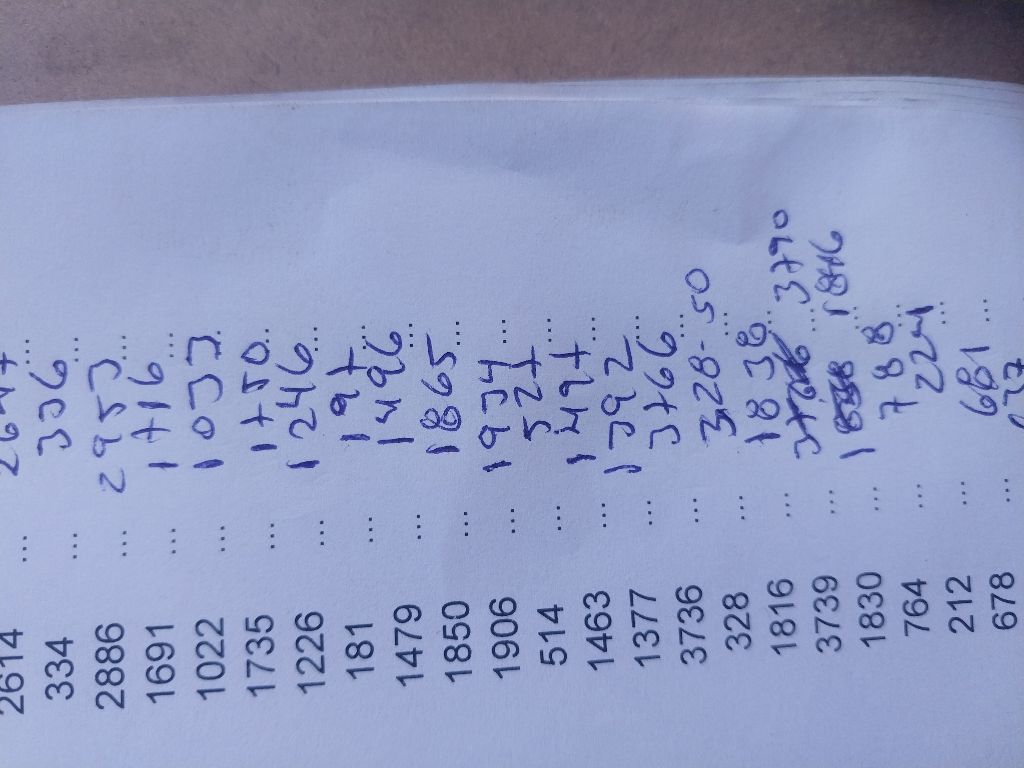 2614 ... 2647 ...
334 ... 336 ...
2886 ... 2953 ...
1691 ... 1716 ...
1022 ... 1033 ...
1735 ... 1750 ...
1226 ... 1246 ...
181 ... 197 ...
1479 ... 1496 ...
1850 ... 1865 ...
1906 ... 1934 ...
514 ... 527 ...
1463 ... 1497 ...
1377 ... 1392 ...
3736 ... 3766 ...
328 ... 328-50 ...
1816 ... 1838 ...
3739 ... 3790
1830 ... 1876
764 ... 788 ...
212 ... 224 ...
678 ... 681 ...